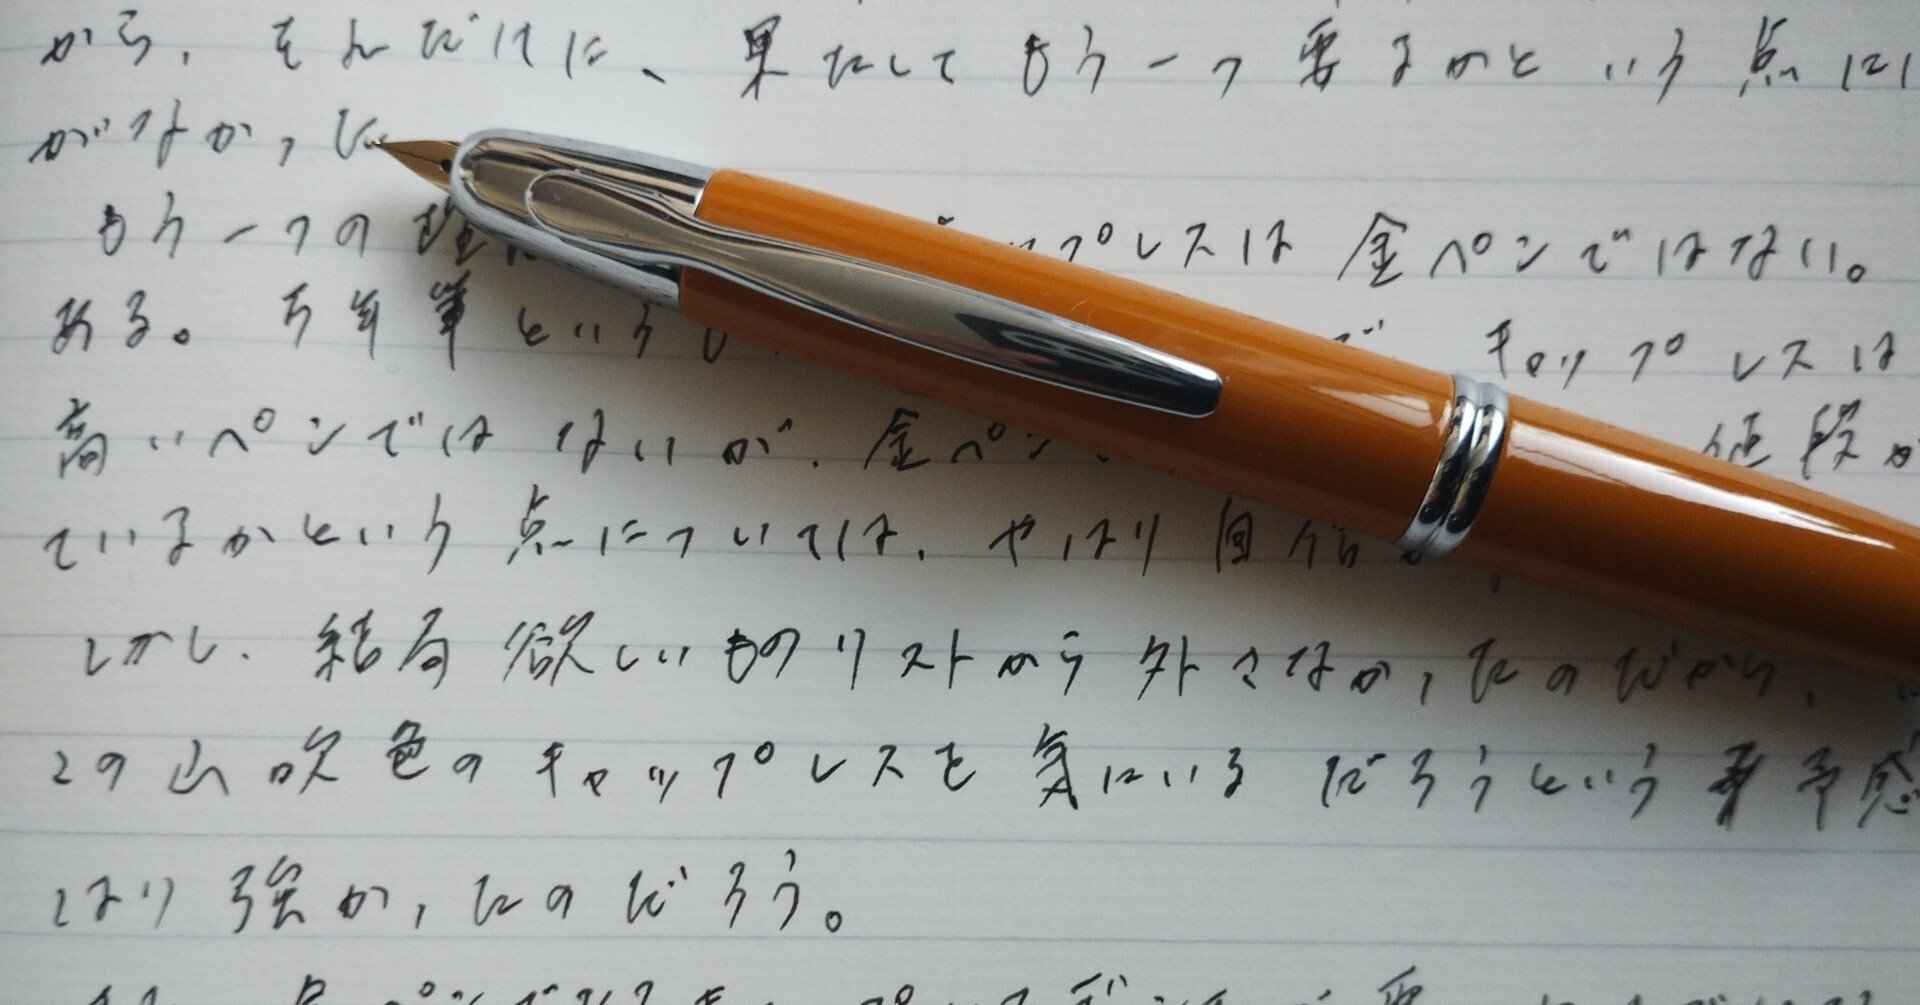 から、それだけに、果たしてもう一つ要るかという点に
がなかった
もう一つの理 ップレスは金ペンではない。
ある。万年筆というし で キャップレスは
高いペンではないが、金ペン 値段が
ているかという点については、やはり自信
しかし、結局欲しいものリストから外さなかったのだから、
この山吹色のキャップレスを気にいるだろうという予感
はり強かったのだろう。